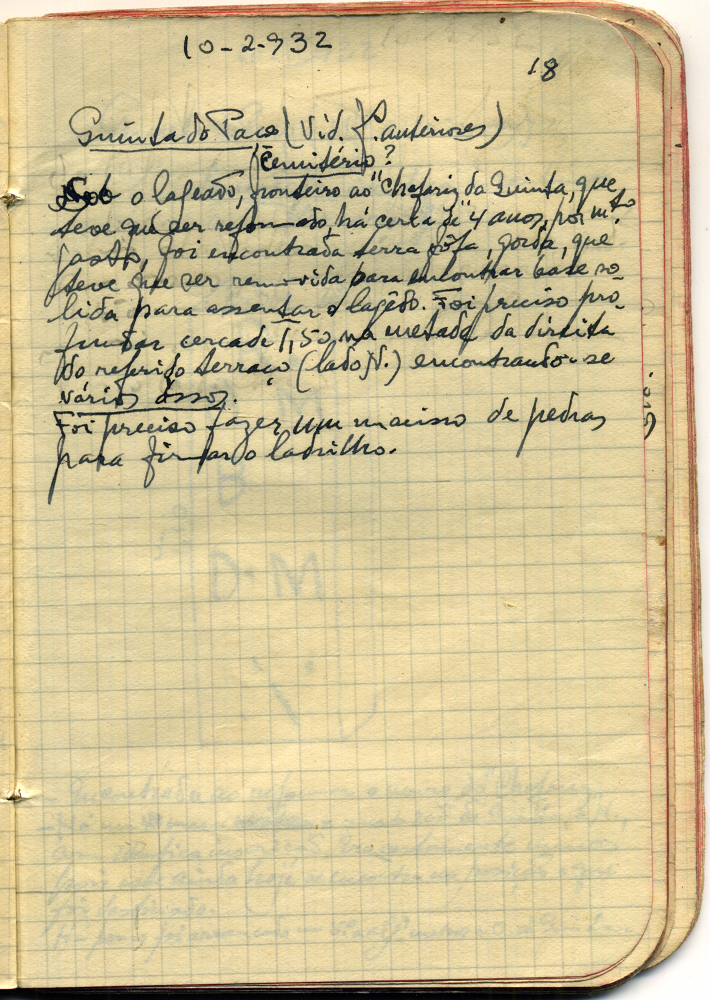 10-2-932
18
Quinta do Paço (Vid. f. anteriores)
Cemitério?
Sob o lageado, fronteiro ao "chafariz da Quinta, que
teve que ser reformado, há cerca de 4 anos, por m.to
gasto, foi encontrada terra fôfa, gorda, que
teve que ser removida para encontrar base so-
lida para assentar o lagêdo. Foi preciso pro-
fundar cerca de 1,50 na metade da direita
do referido terraço (lado N.) encontrando-se
vários óssos.
Foi preciso fazer um macisso de pedras
para firmar o ladrilho.